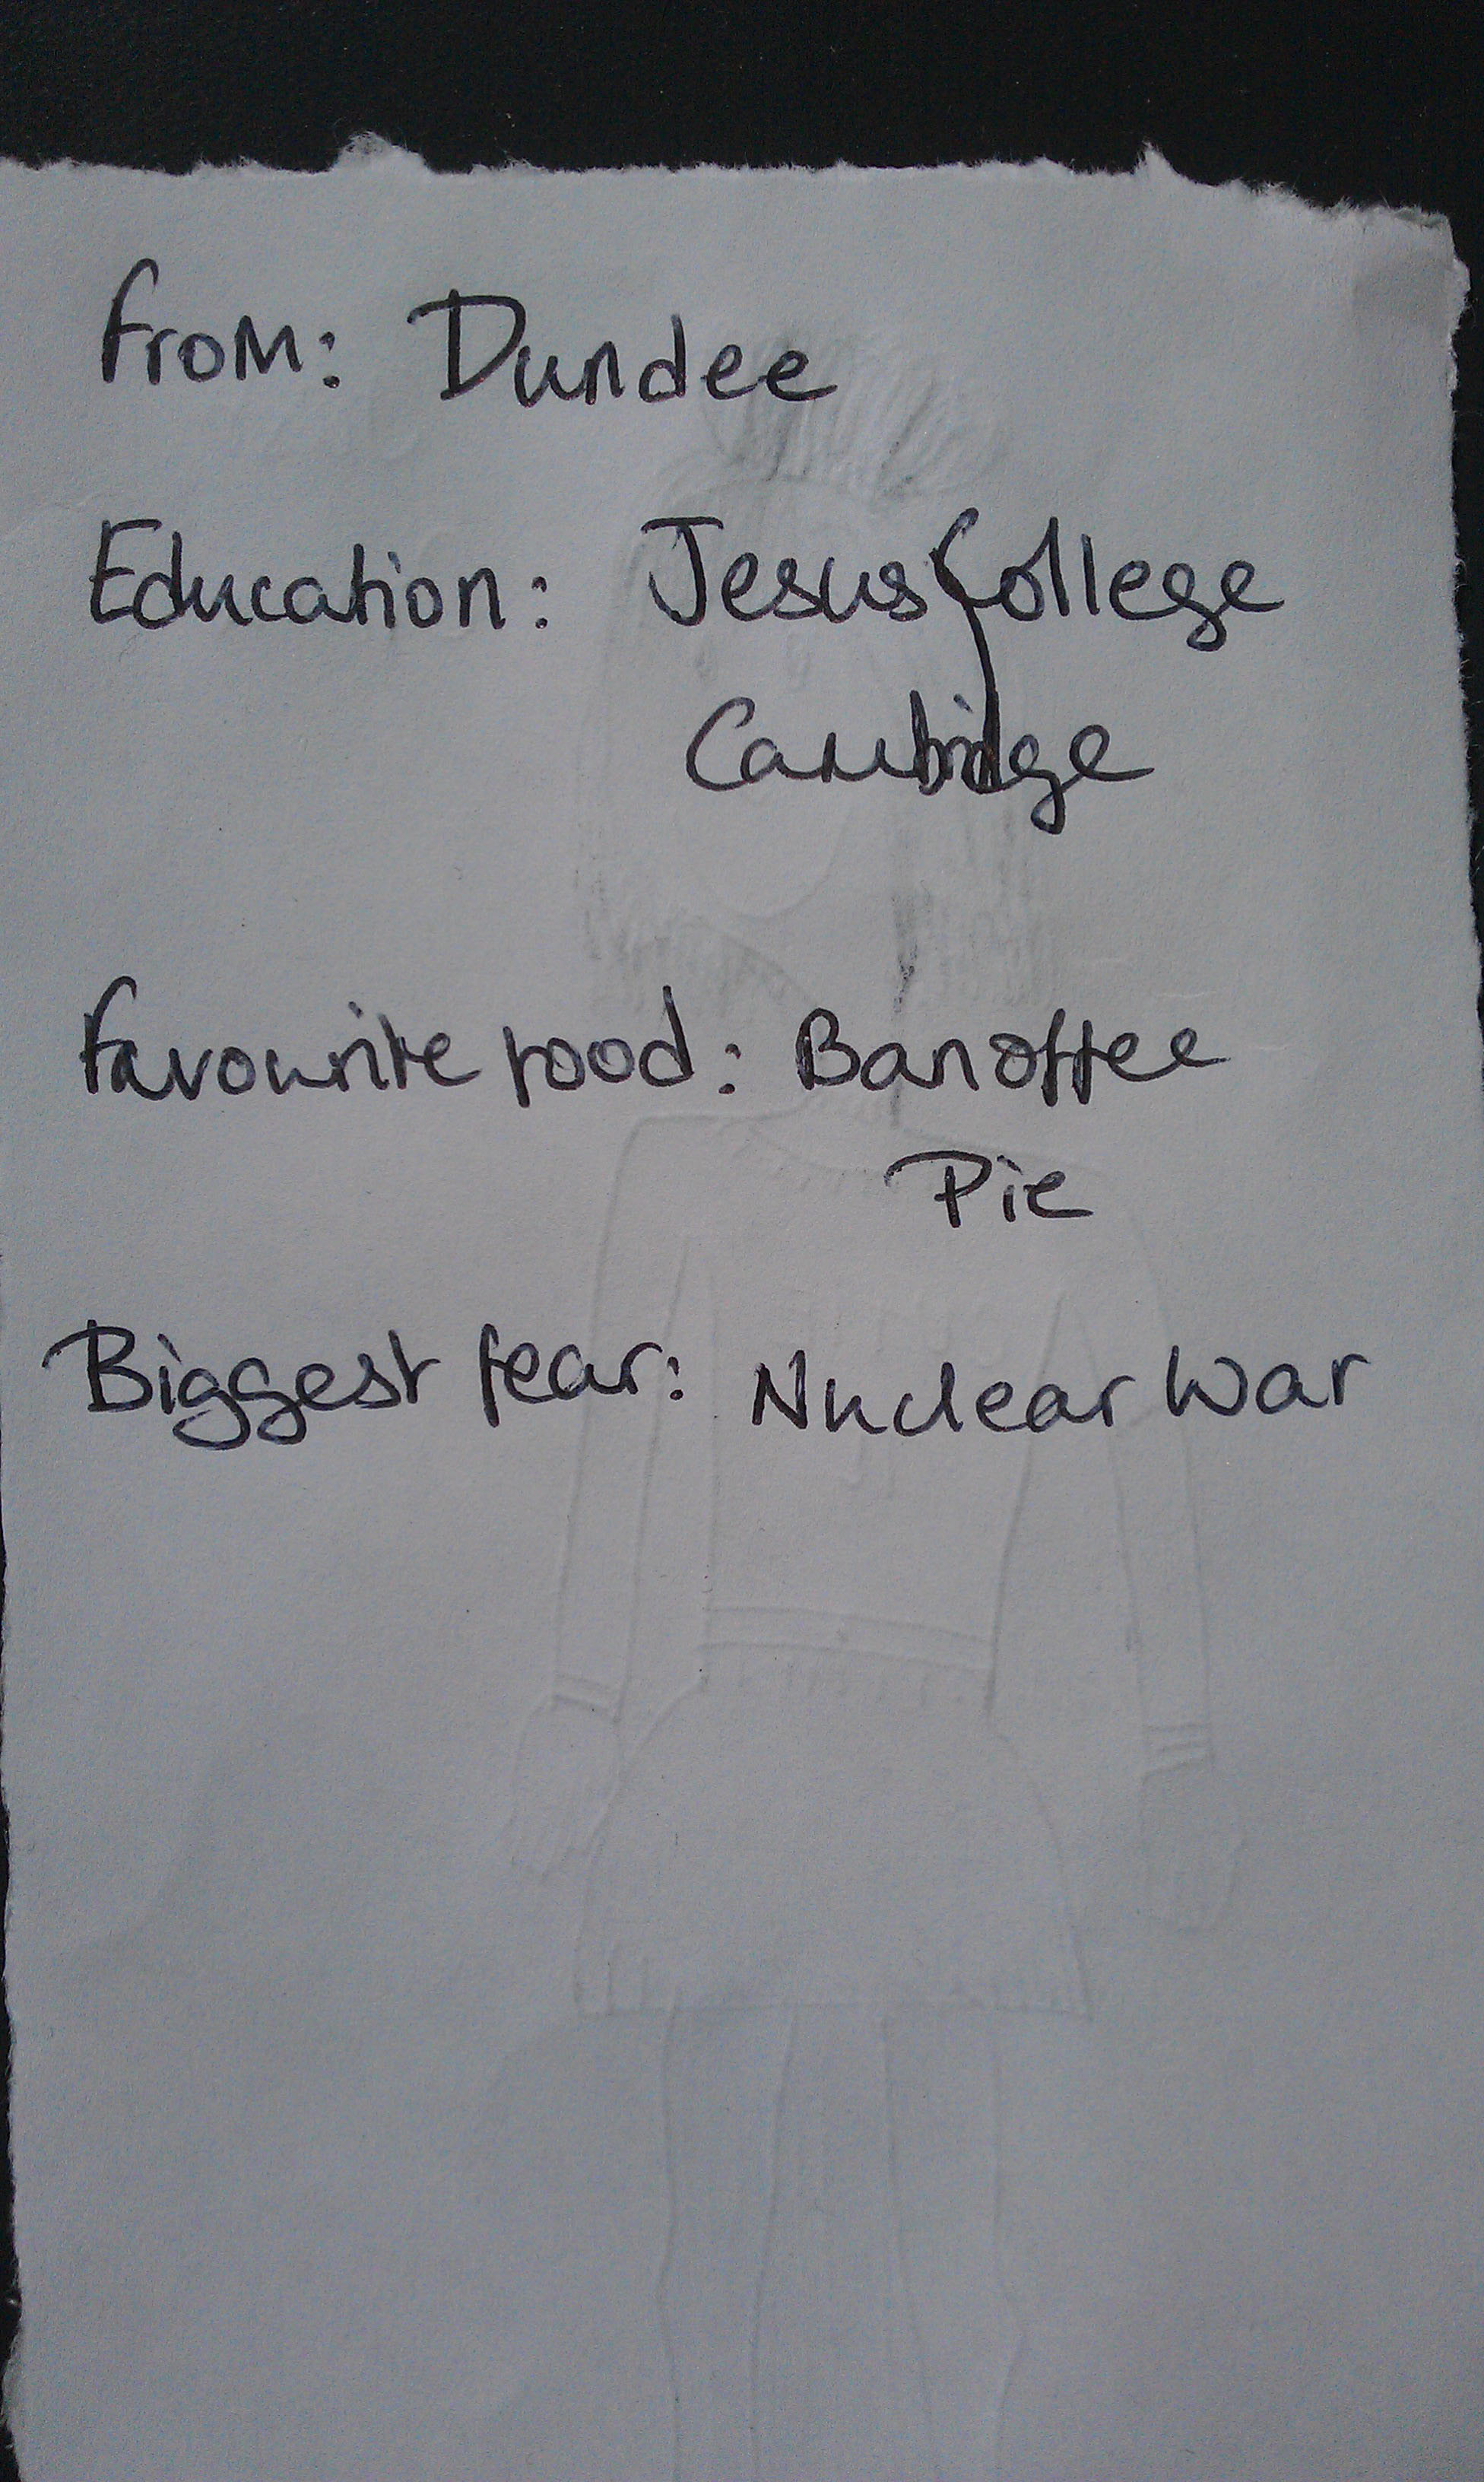 From: Dundee
Education: Jesus College
Cambridge
Favourite food: Banoffee
Pie
Biggest fear: Nuclear War